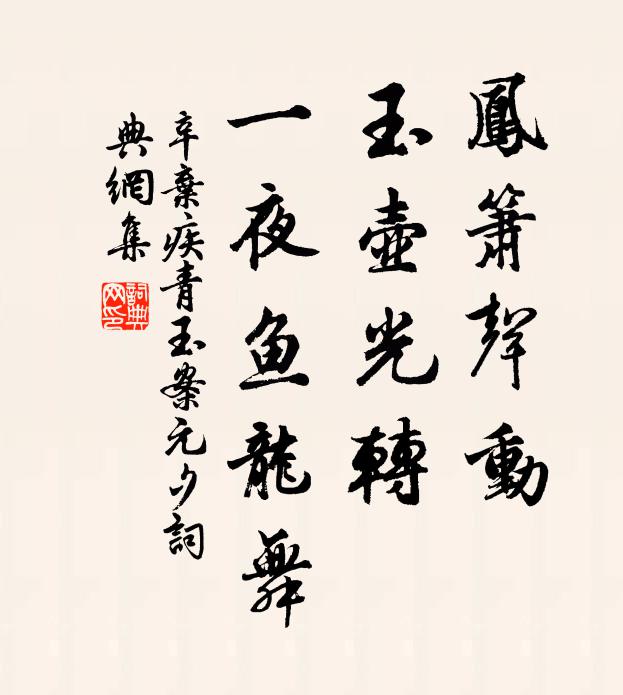 鳳簫聲動
玉壺光轉
一夜鱼龍舞
辛棄疾青玉案元夕詞
典網集
詞典网印